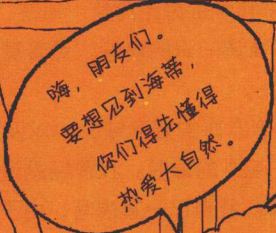 嗨，朋友们。
要想见到海蒂，
你们得先懂得
热爱大自然。